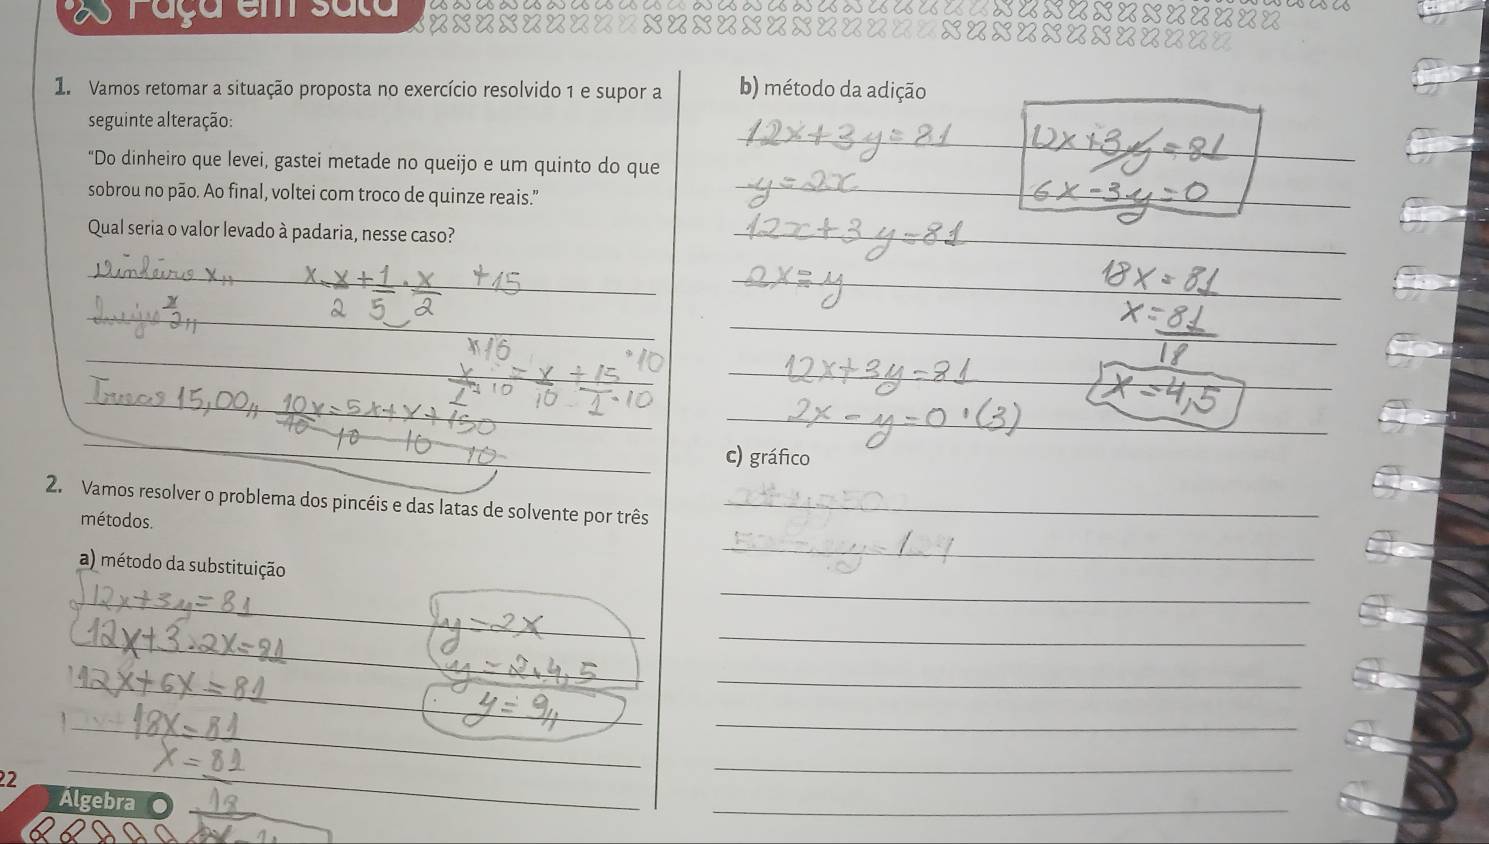 Faça em sala
1. Vamos retomar a situação proposta no exercício resolvido 1 e supor a
seguinte alteração:
"Do dinheiro que levei, gastei metade no queijo e um quinto do que
sobrou no pão. Ao final, voltei com troco de quinze reais."
Qual seria o valor levado à padaria, nesse caso?
Dinheiro x,, x = x/2 + 1/5 · x/2 + 15
Queijo x/2,,
x/1 ·10 = x/10 + 15/1 ·10
Troco 15,00,, 10x/10 = 5x/10 + x/10 + 150/10
2. Vamos resolver o problema dos pincéis e das latas de solvente por três
métodos.
a) método da substituição
12x+3y=81
12x+3·2x=81
12x+6x=81
18x=81
x=81/18
y=2x
y=2·4,5
y=9,,
22
Álgebra
b) método da adição
12x+3y=81
y=2x
12x+3y=81
2x=y
12x+3y=81
2x-y=0·(3)
12x+3y=81
6x-3y=0
18x=81
x=81/18
x=4,5
c) gráfico